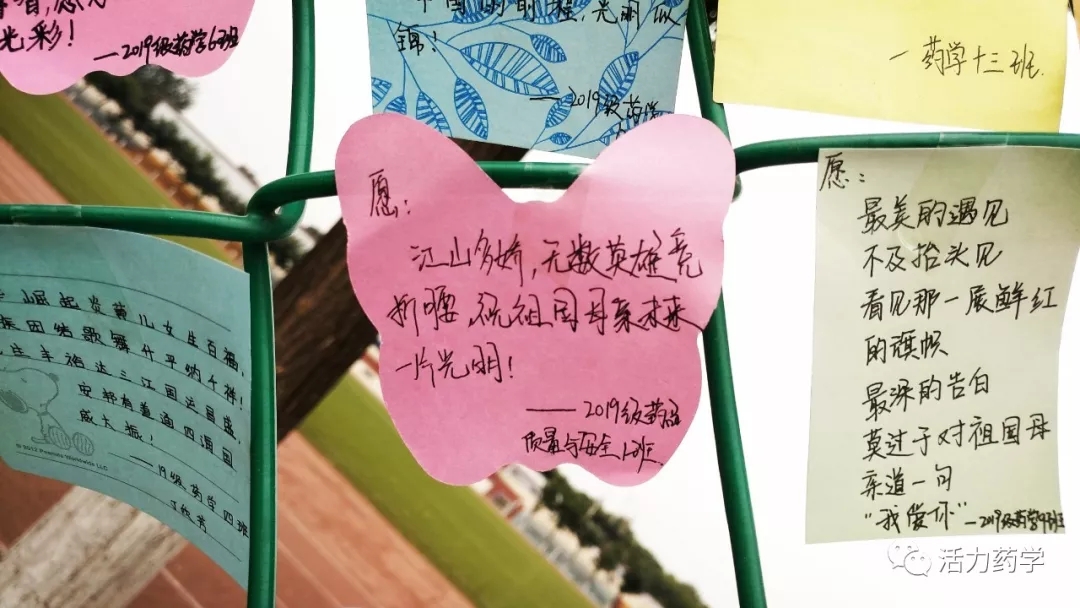 光彩!
—2019级药学6班
锦!
—2019级药学
—药学十三班.
愿:
江山多娇,无数英雄竞
折腰,祝祖国母亲未来
一片光明!
——2019级药品
质量与安全1班.
愿:
最美的遇见
不及抬头见
看见那一展鲜红
的旗帜
最深的告白
莫过于对祖国母
亲道一句
"我爱你"—2019级药学9班
崛起炎黄儿女生百福,
族团结歌舞升平纳千祥!
生丰裕达三江国运昌盛,
安邦有善通四海国
威大振!
——19级药学四班
© 2012 Peanuts Worldwide LLC
活力药学